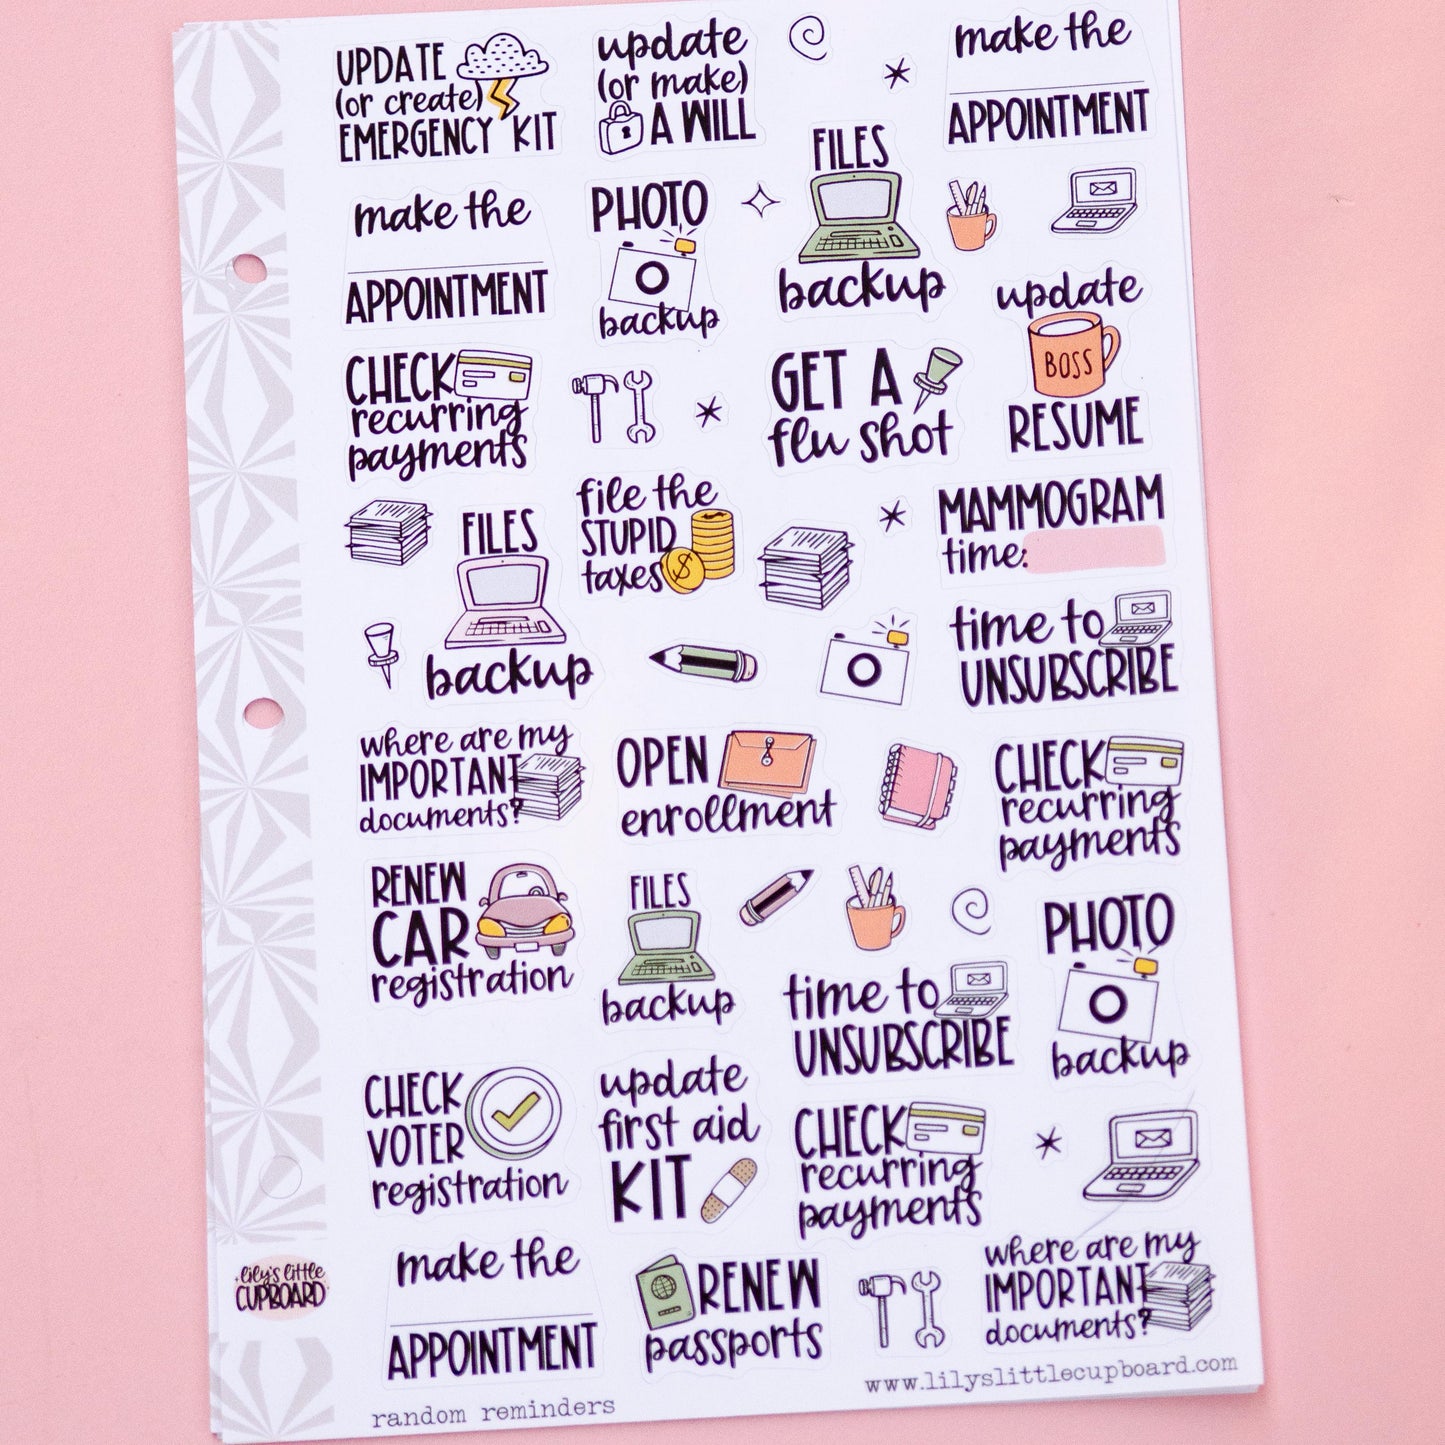 UPDATE
(or create)
EMERGENCY KIT
update
(or make)
A WILL
make the
APPOINTMENT
FILES
backup
make the
APPOINTMENT
PHOTO
backup
update
BOSS
RESUME
CHECK
recurring
payments
GET A
flu shot
file the
STUPID
taxes
$
MAMMOGRAM
time:
FILES
backup
time to
UNSUBSCRIBE
where are my
IMPORTANT
documents?
OPEN
enrollment
CHECK
recurring
payments
RENEW
CAR
registration
FILES
backup
PHOTO
backup
time to
UNSUBSCRIBE
CHECK
VOTER
registration
update
first aid
KIT
CHECK
recurring
payments
make the
APPOINTMENT
RENEW
passports
where are my
IMPORTANT
documents?
lily's little
CUPBOARD
random reminders
www.lilyslittlecupboard.com